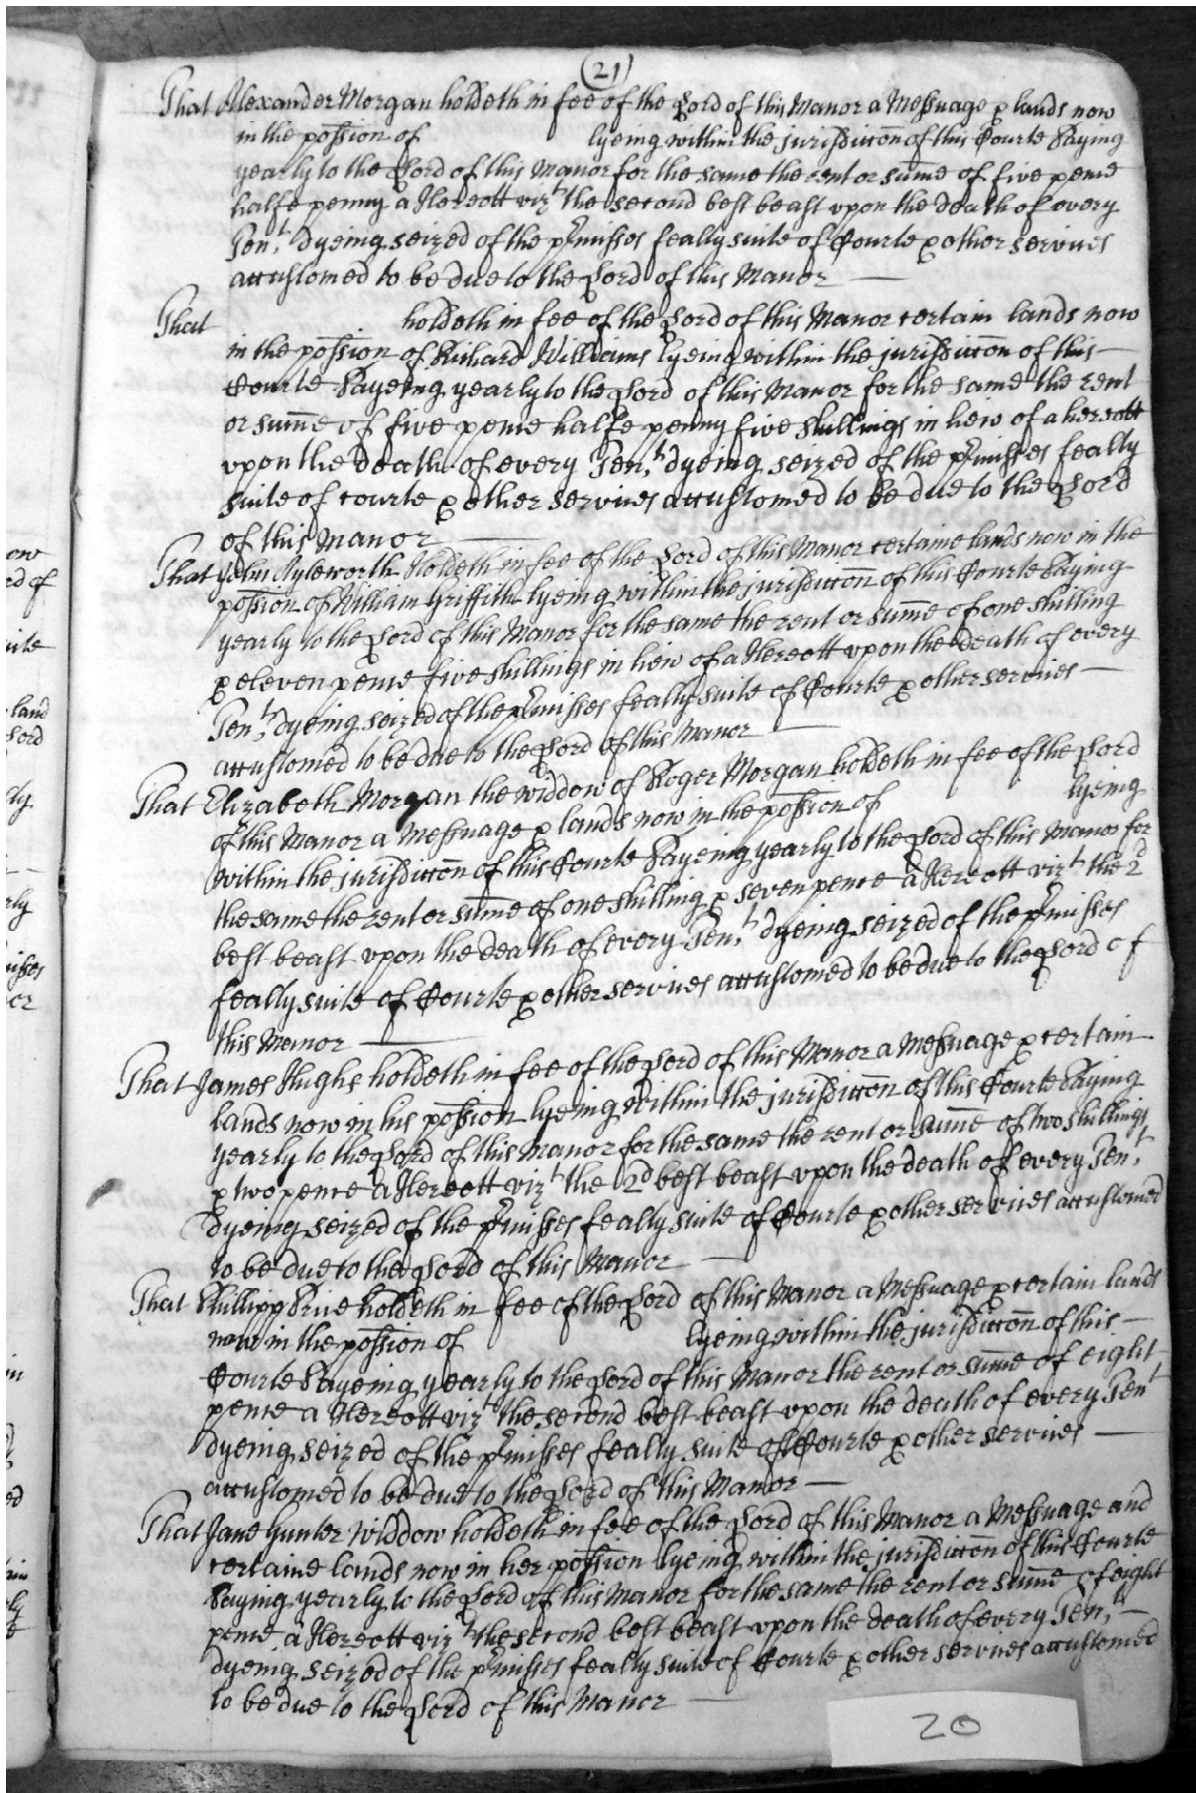 (21)
That Alexander Morgan holdeth in fee of the Lord of this Manor a Messuage & lands now
in the possion of lyeing within the jurisdiccon of this Courte Paying
yearly to the Lord of this Manor for the same the rent or summe of five pence
halfe penny a Hereott vizt the second best beast vpon the death of every
Tent. dyeing seized of the pmisses fealty suite of Courte & other services
accustomed to be due to the Lord of this Manor
That holdeth in fee of the Lord of this Manor certain lands now
in the possion of Richard Williams lyeing within the jurisdiccon of this
Courte Payeing yearly to the Lord of this Manor for the same the rent
or summe of five pence halfe penny five shillings in liew of a hereott
vpon the death of every Tent. dyeing seized of the pmisses fealty
suite of courte & other services accustomed to be due to the Lord
of this Manor
That John Ayleworth Holdeth in fee of the Lord of this Manor certaine lands now in the
possion of William Griffith lyeing within the jurisdiccon of this Courte Paying
yearly to the Lord of this Manor for the same the rent or summe of one shilling
& eleven pence five shillings in liew of a Hereott vpon the death of every
Tent. dyeing seized of the pmisses fealty suite of Courte & other services
accustomed to be due to the Lord of this Manor
That Elizabeth Morgan the widdow of Roger Morgan holdeth in fee of the Lord
of this Manor a Messuage & lands now in the possion of lyeing
within the jurisdiccon of this Courte Payeing yearly to the Lord of this Manor for
the same the rent or summe of one shilling & seven pence a Hereott vizt the 2d
best beast vpon the death of every Tent. dyeing seized of the pmisses
fealty suite of Courte & other services accustomed to be due to the Lord of
this Manor
That James Hughs holdeth in fee of the Lord of this Manor a Messuage & certain
lands now in his possion lyeing within the jurisdiccon of this Courte Paying
yearly to the Lord of this Manor for the same the rent or summe of two shillings
& two pence a Hereott vizt the 2d best beast vpon the death of every Tent.
dyeing seized of the pmisses fealty suite of Courte & other services accustomed
to be due to the Lord of this Manor
That Phillipp Price holdeth in fee of the Lord of this Manor a Messuage & certain lands
now in the possion of lyeing within the jurisdiccon of this
Courte Payeing yearly to the Lord of this Manor the rent or summe of eight
pence a Hereott vizt the second best beast vpon the death of every Tent
dyeing seized of the pmisses fealty suite of Courte & other services
accustomed to be due to the Lord of this Manor
That Jane Gunter Widdow holdeth in fee of the Lord of this Manor a Messuage and
certaine lands now in her possion lyeing within the jurisdiccon of this Courte
Paying yearly to the Lord of this Manor for the same the rent or summe of eight
pence a Hereott vizt the second best beast vpon the death of every Tent.
dyeing seized of the pmisses fealty suite of Courte & other services accustomed
to be due to the Lord of this Manor
20